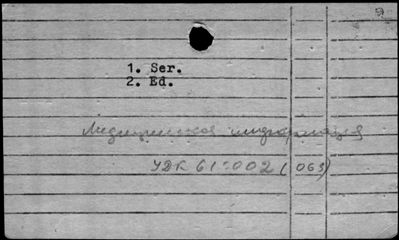 1. Ser.
2. Ed.
Медицинская информация
УДК 61:002 (063)